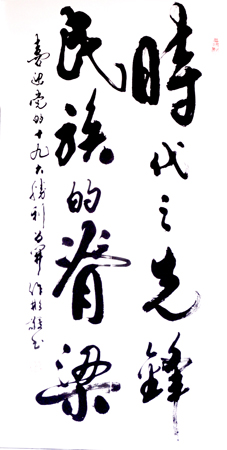 時代之先鋒
民族的脊梁
喜迎党的十九大勝利召開